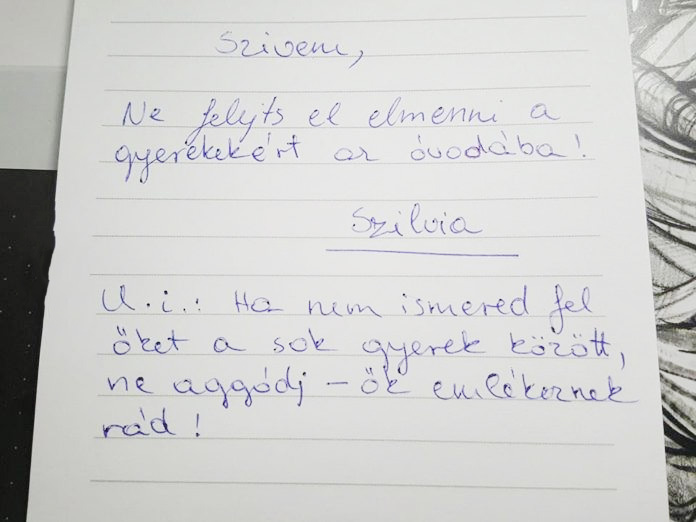 Szivem,
Ne felejts el elmenni a
gyerekekért az óvodába!
Szilvia
U.i.: Ha nem ismered fel
őket a sok gyerek között,
ne aggódj – ők emlékeznek
rád!